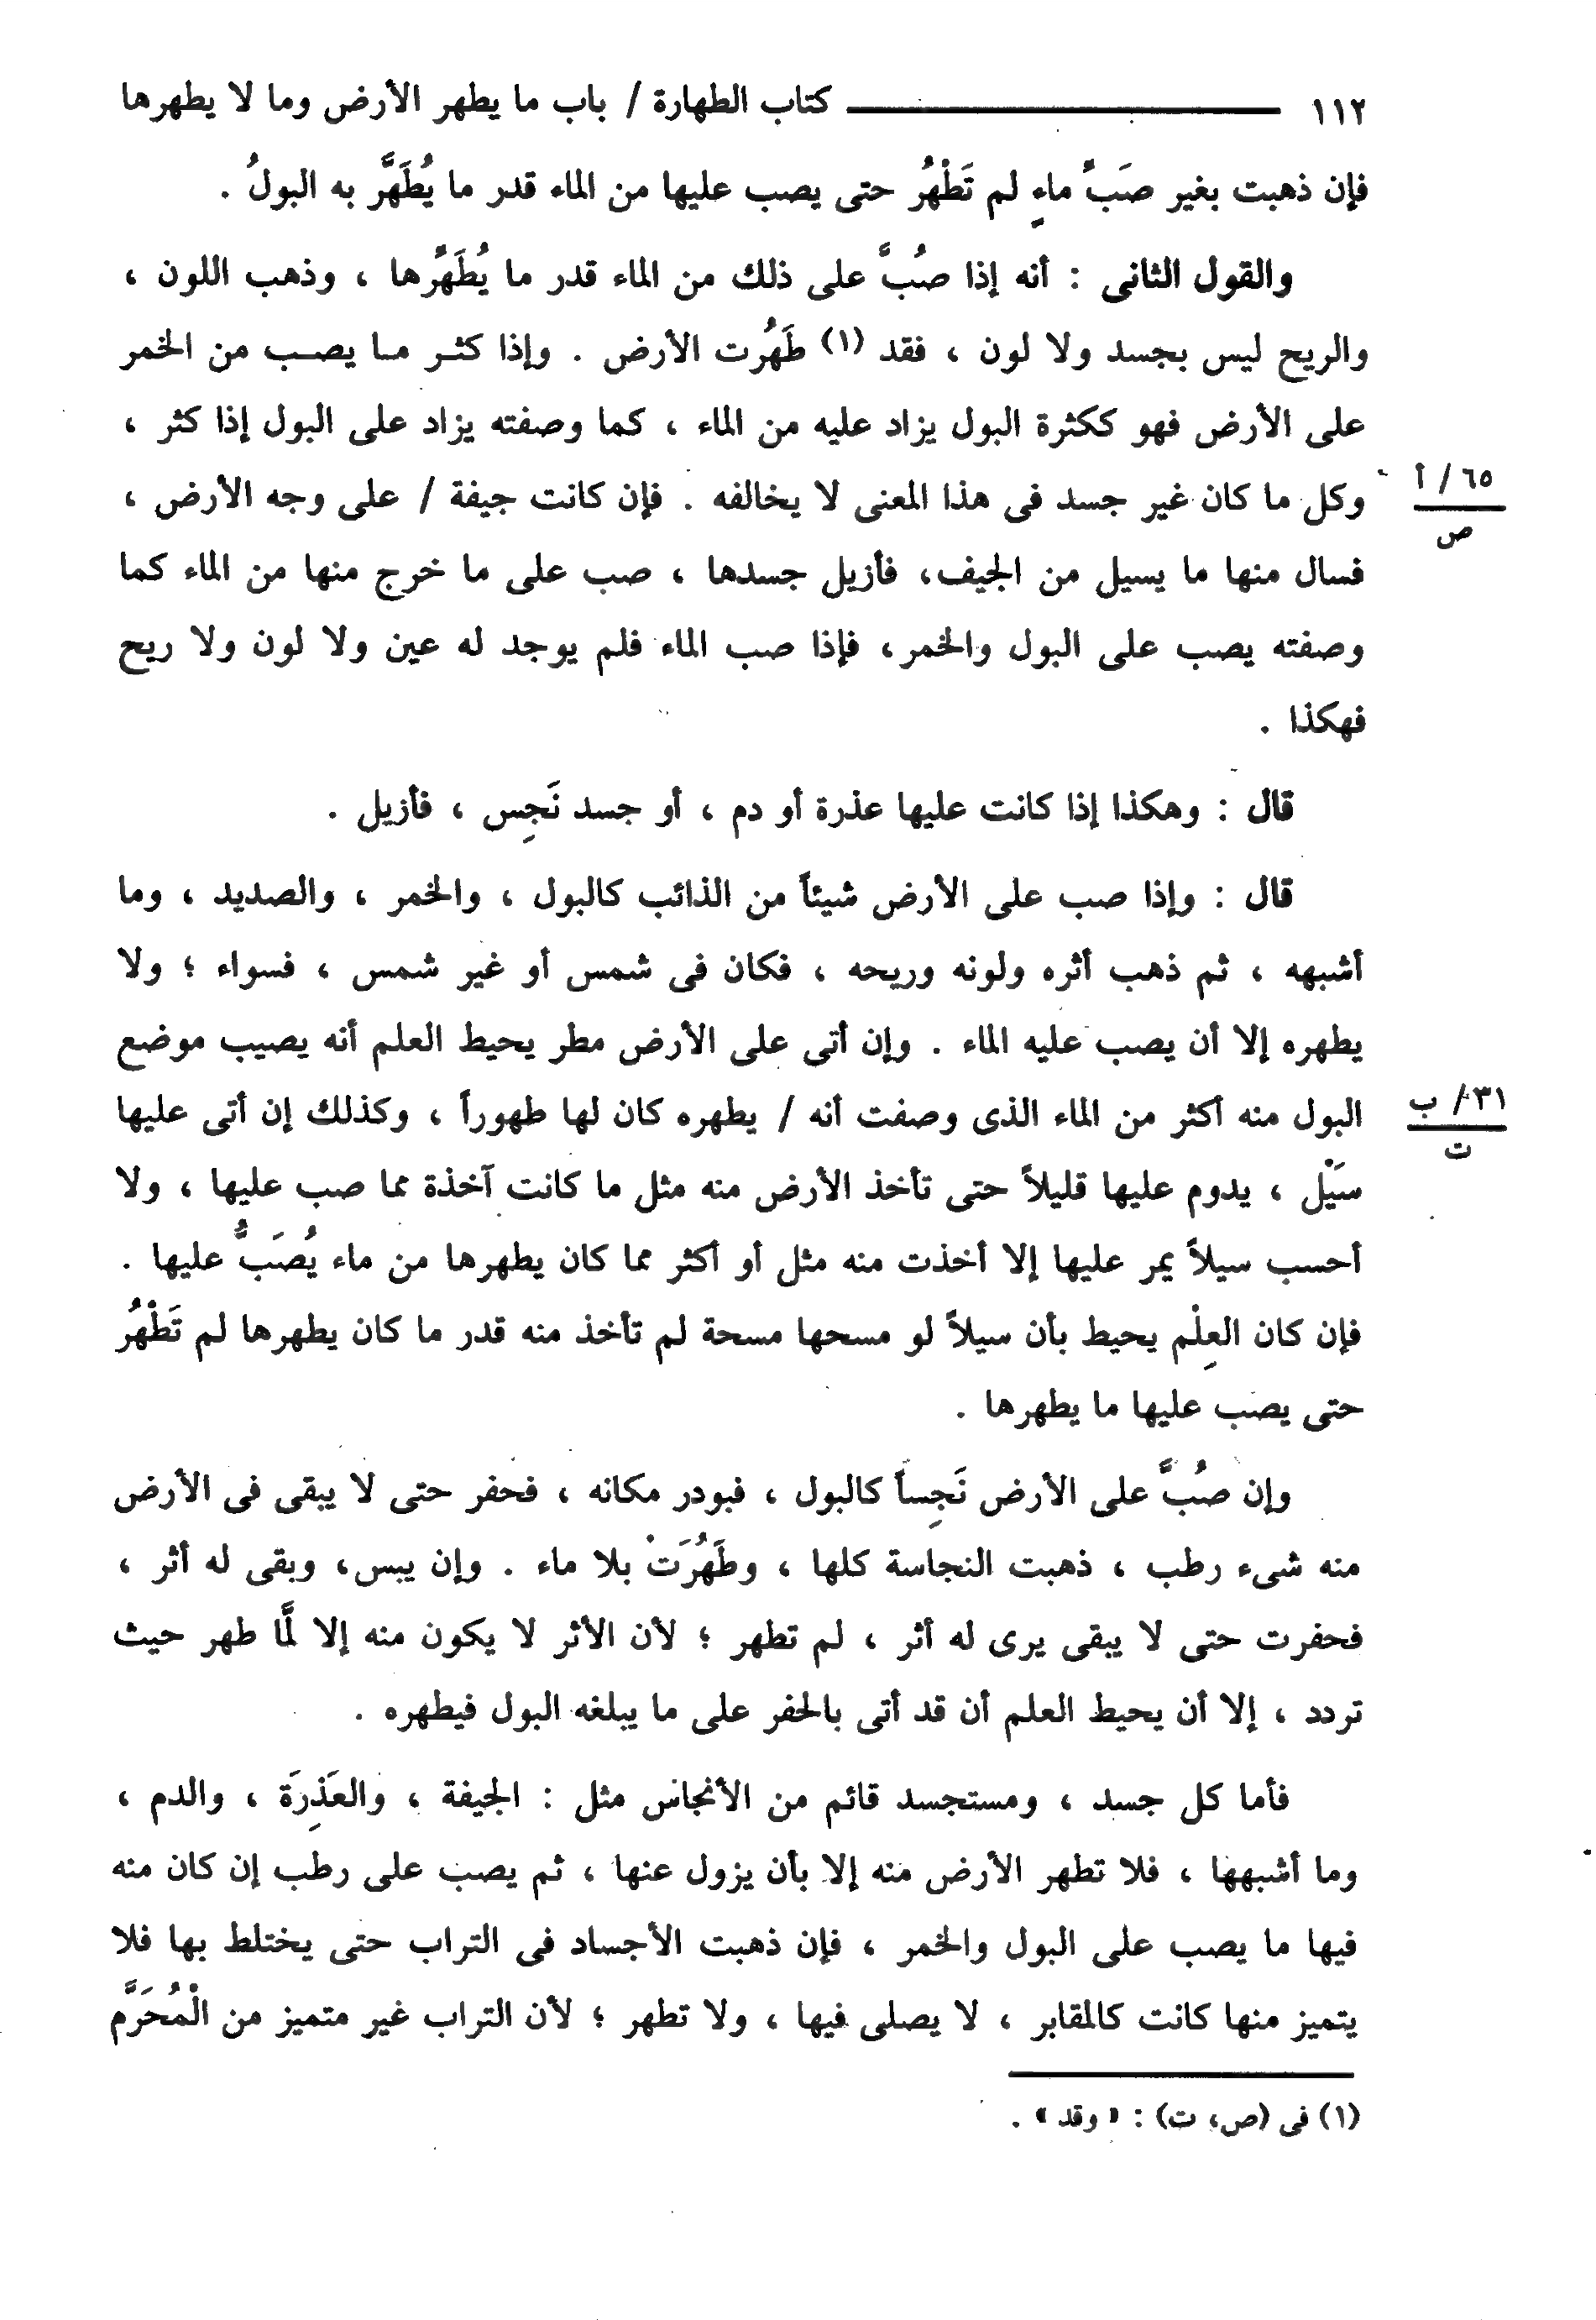 ١١٢ كتاب الطهارة / باب ما يطهر الأرض وما لا يطهرها
فإن ذهبت بغير صَبِّ ماءٍ لم تَطْهُر حتى يصب عليها من الماء قدر ما يُطَهَّر به البولُ .
والقول الثانى : أنه إذا صُبَّ على ذلك من الماء قدر ما يُطَهِّرها ، وذهب اللون ،
والريح ليس بجسد ولا لون ، فقد (١) طَهُرت الأرض . وإذا كثر ما يصب من الخمر
على الأرض فهو ككثرة البول يزاد عليه من الماء ، كما وصفته يزاد على البول إذا كثر ،
وكل ما كان غير جسد فى هذا المعنى لا يخالفه . فإن كانت جيفة / على وجه الأرض ،
٦٥ / أ
ص
فسال منها ما يسيل من الجيف، فأزيل جسدها ، صب على ما خرج منها من الماء كما
وصفته يصب على البول والخمر، فإذا صب الماء فلم يوجد له عين ولا لون ولا ريح
فهكذا .
قال : وهكذا إذا كانت عليها عذرة أو دم ، أو جسد نَجِس ، فأزيل .
قال : وإذا صب على الأرض شيئاً من الذائب كالبول ، والخمر ، والصديد ، وما
أشبهه ، ثم ذهب أثره ولونه وريحه ، فكان فى شمس أو غير شمس ، فسواء ؛ ولا
يطهره إلا أن يصب عليه الماء . وإن أتى على الأرض مطر يحيط العلم أنه يصيب موضع
البول منه أكثر من الماء الذى وصفت أنه / يطهره كان لها طهوراً ، وكذلك إن أتى عليها
٣١/ ب
ت
سَيْل ، يدوم عليها قليلاً حتى تأخذ الأرض منه مثل ما كانت آخذة مما صب عليها ، ولا
أحسب سيلاً يمر عليها إلا أخذت منه مثل أو أكثر مما كان يطهرها من ماء يُصَبُّ عليها .
فإن كان العِلْم يحيط بأن سيلاً لو مسحها مسحة لم تأخذ منه قدر ما كان يطهرها لم تَطْهُر
حتى يصب عليها ما يطهرها .
وإن صُبَّ على الأرض نَجِساً كالبول ، فبودر مكانه ، فحفر حتى لا يبقى فى الأرض
منه شىء رطب ، ذهبت النجاسة كلها ، وطَهُرَتْ بلا ماء . وإن يبس، وبقى له أثر ،
فحفرت حتى لا يبقى يرى له أثر ، لم تطهر ؛ لأن الأثر لا يكون منه إلا لَمَّا طهر حيث
تردد ، إلا أن يحيط العلم أن قد أتى بالحفر على ما يبلغه البول فيطهره .
فأما كل جسد ، ومستجسد قائم من الأنجاس مثل : الجيفة ، والعَذِرَة ، والدم ،
وما أشبهها ، فلا تطهر الأرض منه إلا بأن يزول عنها ، ثم يصب على رطب إن كان منه
فيها ما يصب على البول والخمر ، فإن ذهبت الأجساد فى التراب حتى يختلط بها فلا
يتميز منها كانت كالمقابر ، لا يصلى فيها ، ولا تطهر ؛ لأن التراب غير متميز من الْمُحَرَّم
(١) فى (ص، ت) : « وقد » .